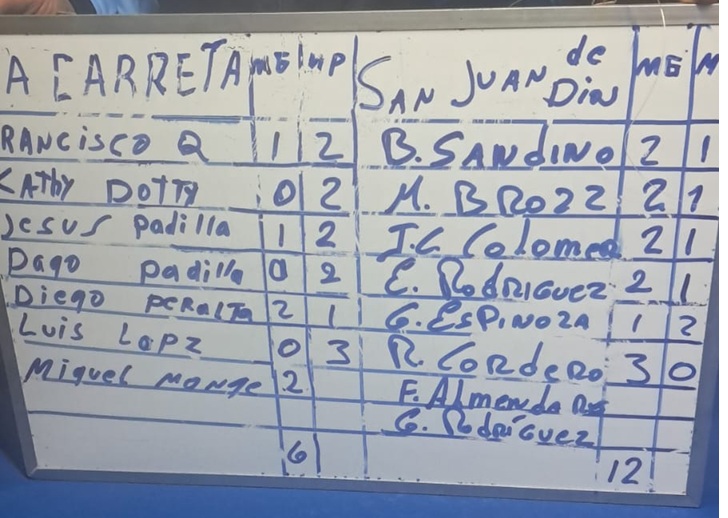 A CARRETA ME MP SAN JUAN de Dios ME M
RANCISCO Q 1 2 B. SANDINO 2 1
KATHY DOTTY 0 2 M. BROZZ 2 1
Jesus Padilla 1 2 J.C Colomea 2 1
Dago Padilla 0 2 E. RodRIGUEZ 2 1
Diego PERALTA 2 1 G. ESPINOZA 1 2
Luis LOPZ 0 3 R. CORdeRo 3 0
Miguel Monge 2 F. Almenda Ros
G. Rodríguez
6 12